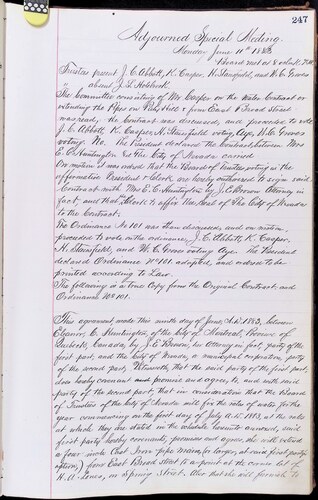 247
Adjourned Special Meeting.
Monday June 11th 1883
Board met at 8 o'clock P.M.
Trustees present J. C. Abbott, K. Casper, H. Stansfield, and W. C. Groves
absent J. S. Holbrook.
The Committee consisting of Mr Casper on the Water Contract or
extending the Pipes on from East Broad Street
was read, the Contract was discussed, and proceeded to vote
J. C. Abbott, K. Casper, H. Stansfield voting Aye, W. C. Groves
voting No. The President declared the Contract between Mrs
E. C. Huntington & The City of Nevada carried
On motion it was ordered that the Board of Trustees voting in the
affirmative President & Clerk are hereby authorized to sign said
Contract with Mrs E. C. Huntington by J. E. Brown Attorney in
fact, and that Clerk to affix the Seal of The City of Nevada
to the Contract:
The Ordinance No 101 was then discussed, and on motion
proceeded to vote on the ordinance, J. C. Abbott, K. Casper,
H. Stansfield, and W. C. Groves voting Aye. The President
declared Ordinance No 101 adopted, and ordered to be
printed according to Law.
The following is a true Copy from the Original Contract, and
Ordinance No 101.
This agreement made this ninth day of June A.D. 1883, between
Eleanor C. Huntington of the City of Montreal, Province of
Quebec, Canada, by J. E. Brown, her Attorney in fact, party of the
first part, and the City of Nevada, a municipal corporation, party
of the second part, Witnesseth, that the said party of the first part,
does hereby covenant and promise and agree, to, and with said
party of the second part, that in consideration that the Board
of Trustees of the City of Nevada will fix the rates of water for the
year commencing on the first day of July A.D. 1883, at the rates
at which they are stated in the schedule hereunto annexed, said
first party hereby covenants, promises and agrees, she will extend
a four inch Cast Iron pipe main, (or larger, at said first party's
option,) from East Broad Street to a point at the corner lot of
H. A. Jones, on Spring Street. Also that she will furnish to